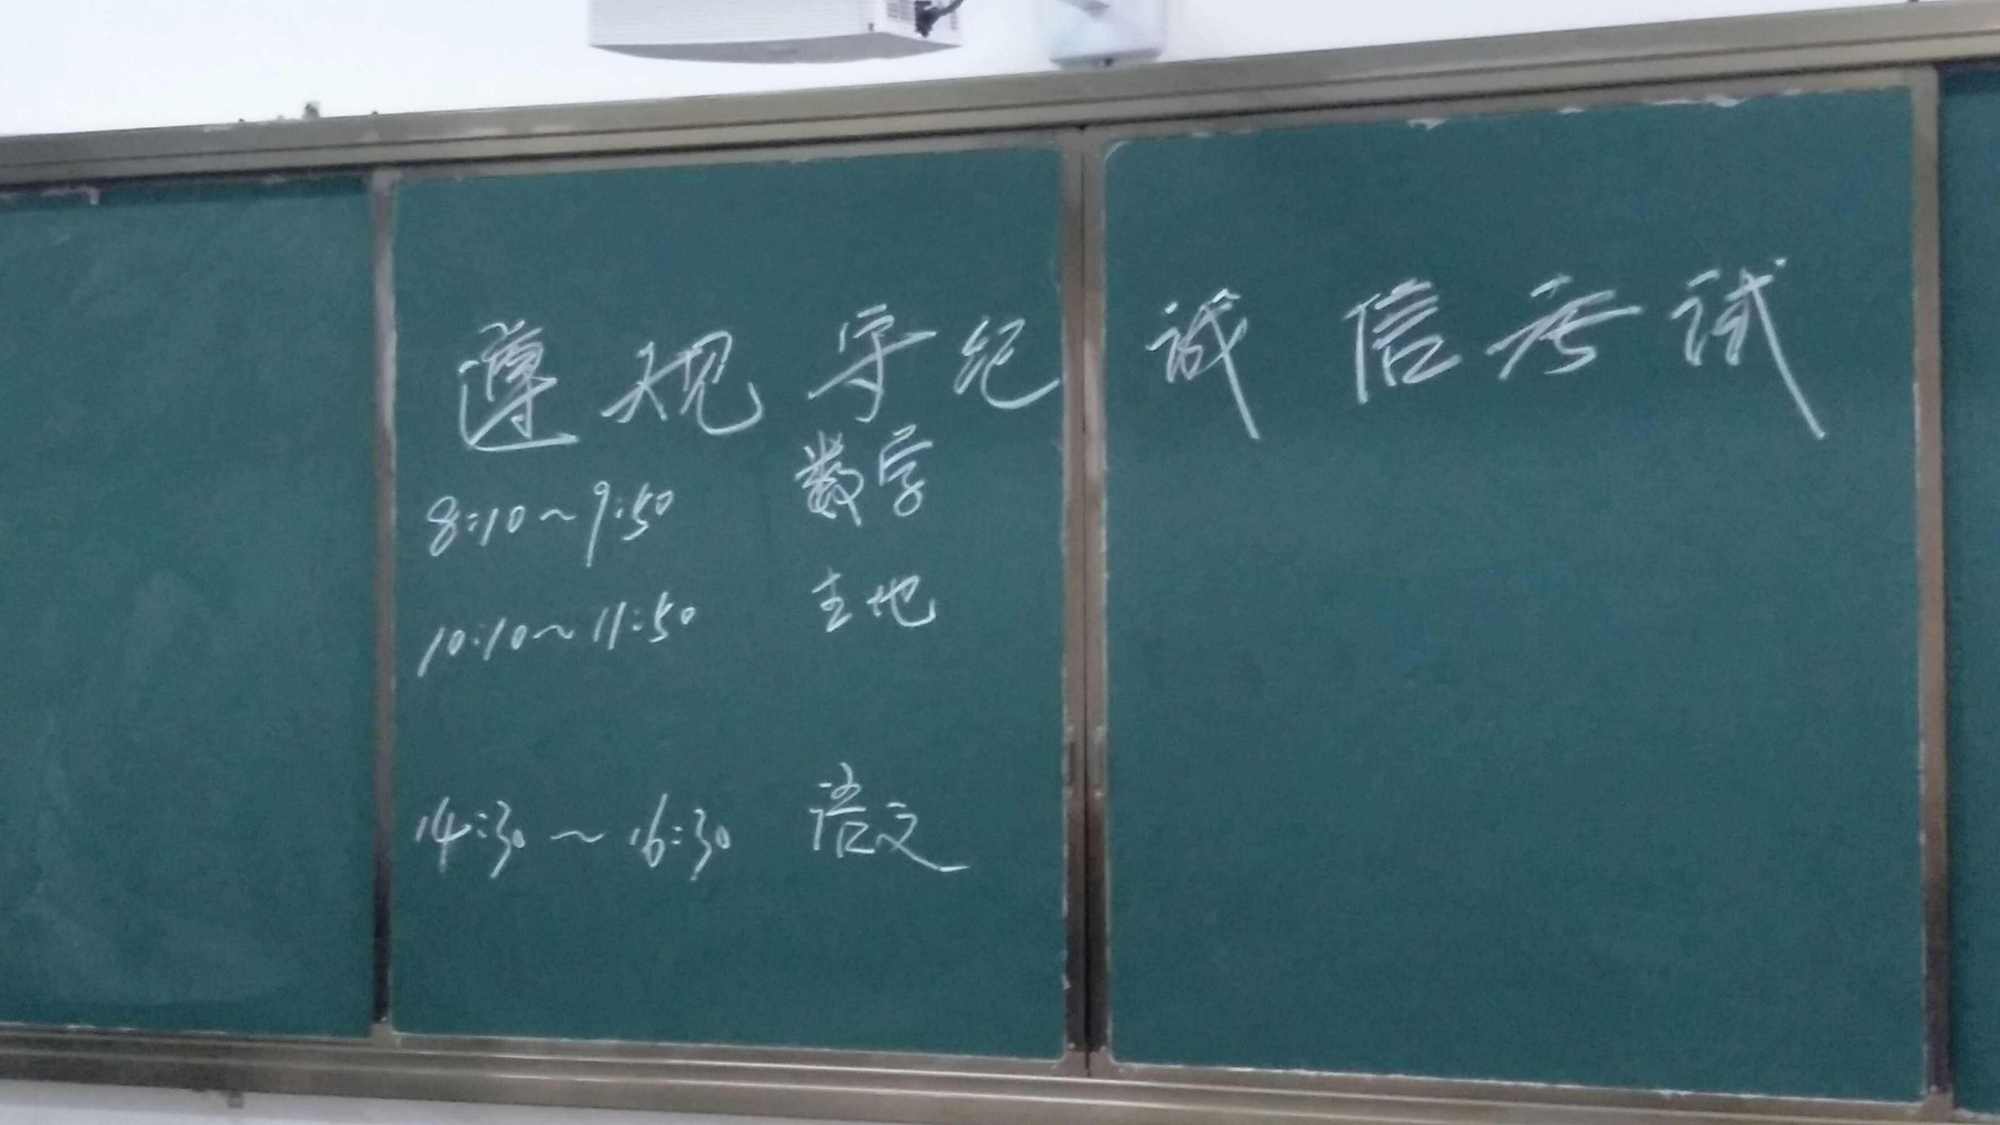 遵规守纪 诚信考试
8:10~9:50 数学
10:10~11:50 生地
14:30~16:30 语文